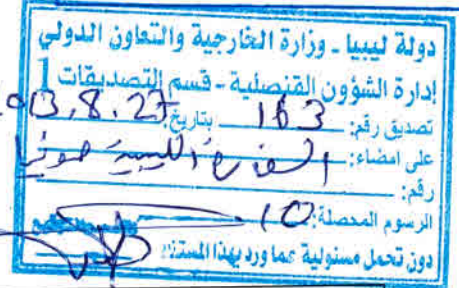 دولة ليبيا - وزارة الخارجية والتعاون الدولي
إدارة الشؤون القنصلية - قسم التصديقات 1
تصديق رقم: 163 بتاريخ: 2013.8.27
على امضاء: السفارة الليبية صوفيا
رقم:
الرسوم المحصلة: 10
دون تحمل مسئولية عما ورد بهذا المستند